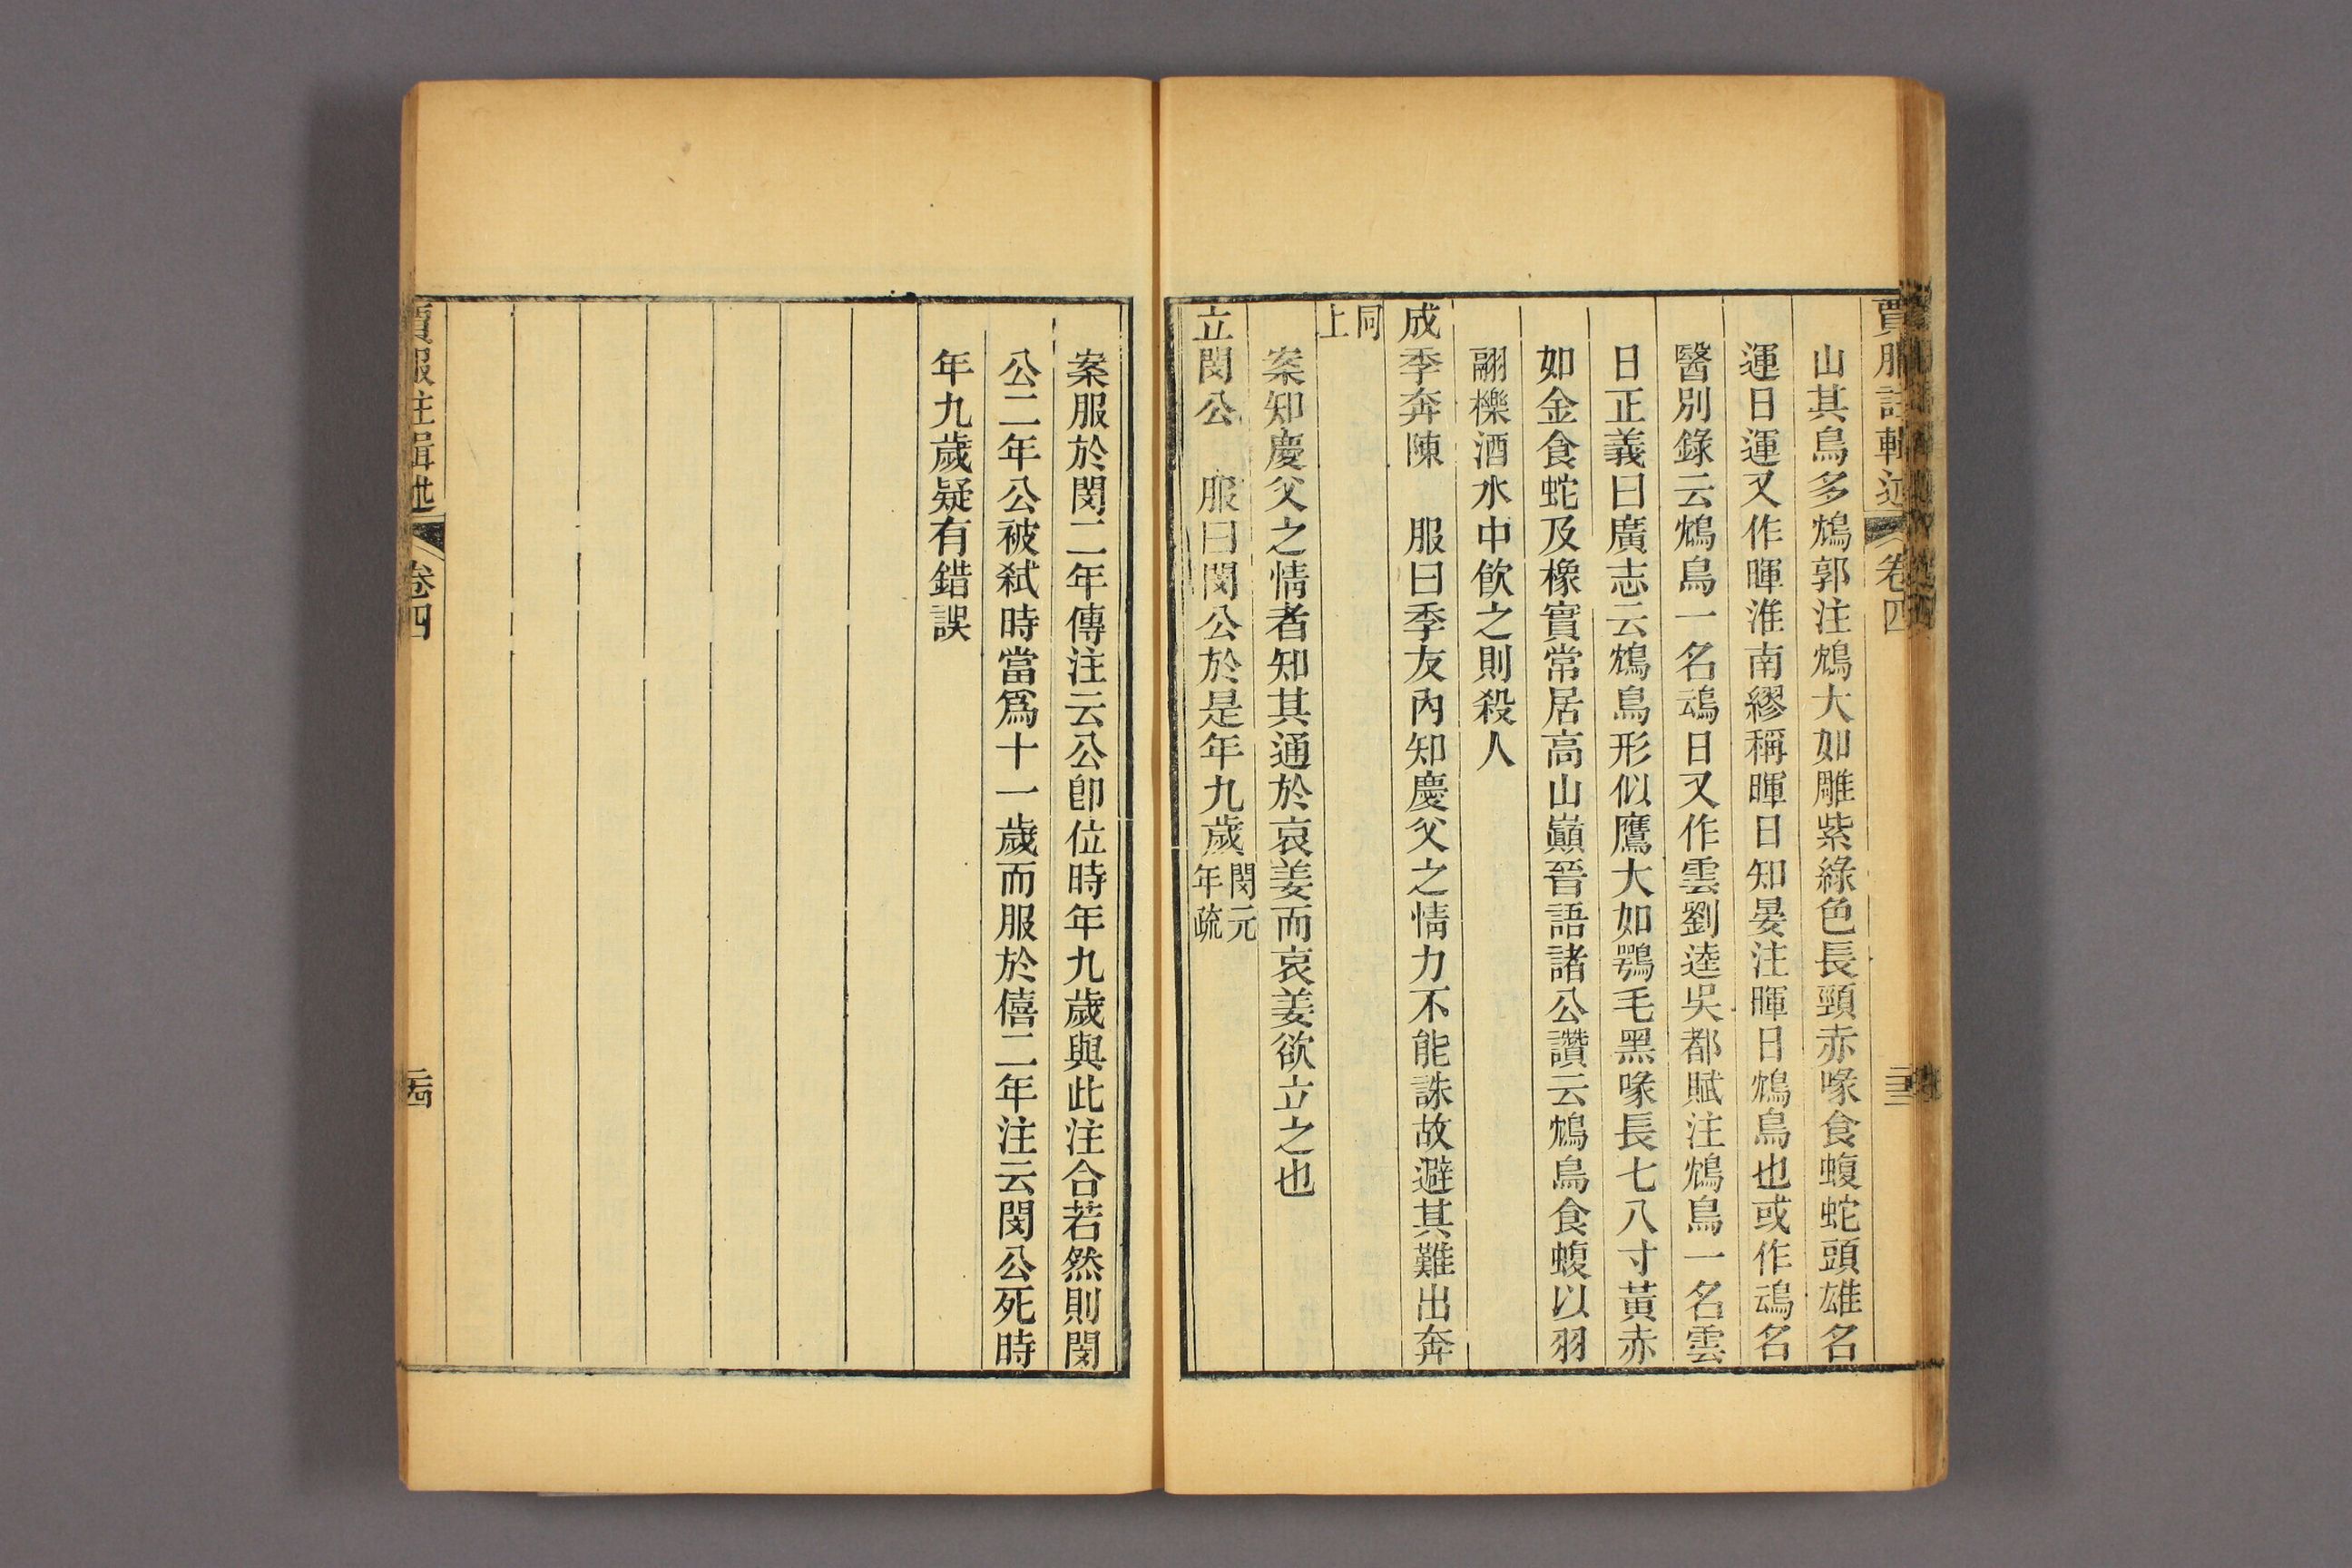 賈服註輯述
卷四
三十三
山其鳥多鴆郭注鴆大如雕紫綠色長頸赤喙食蝮蛇頭雄名
運日運又作暉淮南繆稱暉日知晏注暉日鴆鳥也或作鴆名
醫別錄云鴆鳥一名䲰日又作雲劉逵吳都賦注鴆鳥一名雲
日正義曰廣志云鴆鳥形似鷹大如鶚毛黑喙長七八寸黃赤
如金食蛇及橡實常居高山巔晉語諸公讚云鴆鳥食蝮以羽
翮櫟酒水中飲之則殺人
成季奔陳 服曰季友內知慶父之情力不能誅故避其難出奔
同上
案知慶父之情者知其通於哀姜而哀姜欲立之也
立閔公 服曰閔公於是年九歲閔元年疏
案服於閔二年傳注云公卽位時年九歲與此注合若然則閔
公二年公被弒時當爲十一歲而服於僖二年注云閔公死時
年九歲疑有錯誤
賈服注輯述
卷四